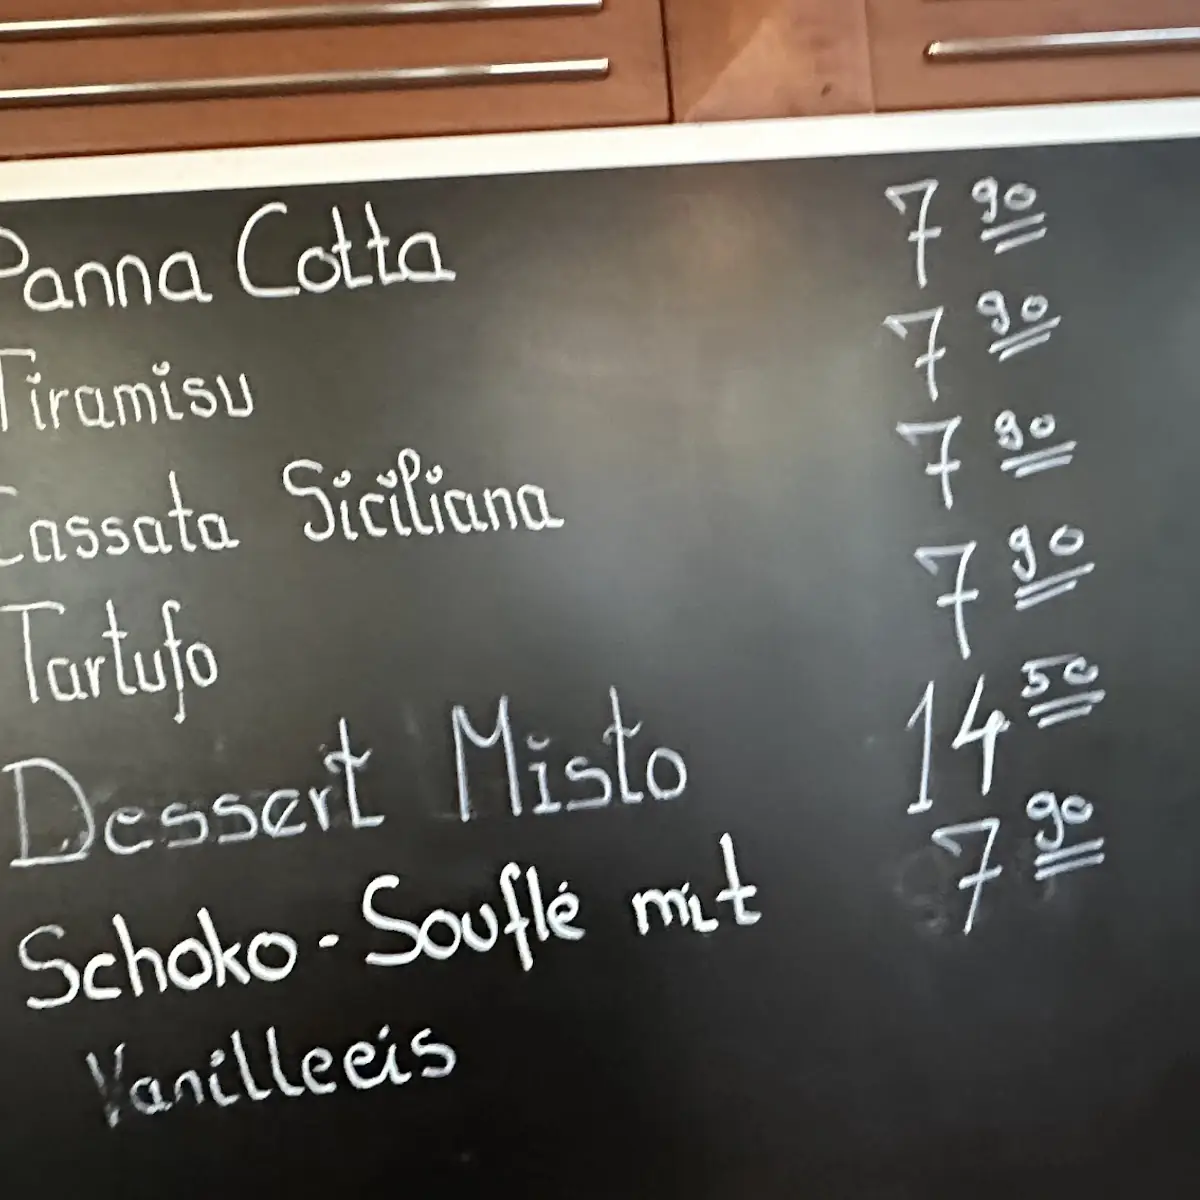 Panna Cotta 7 90
Tiramisu 7 90
Cassata Siciliana 7 90
Tartufo 7 90
Dessert Misto 14 50
Schoko-Souflé mit 7 90
Vanilleeis